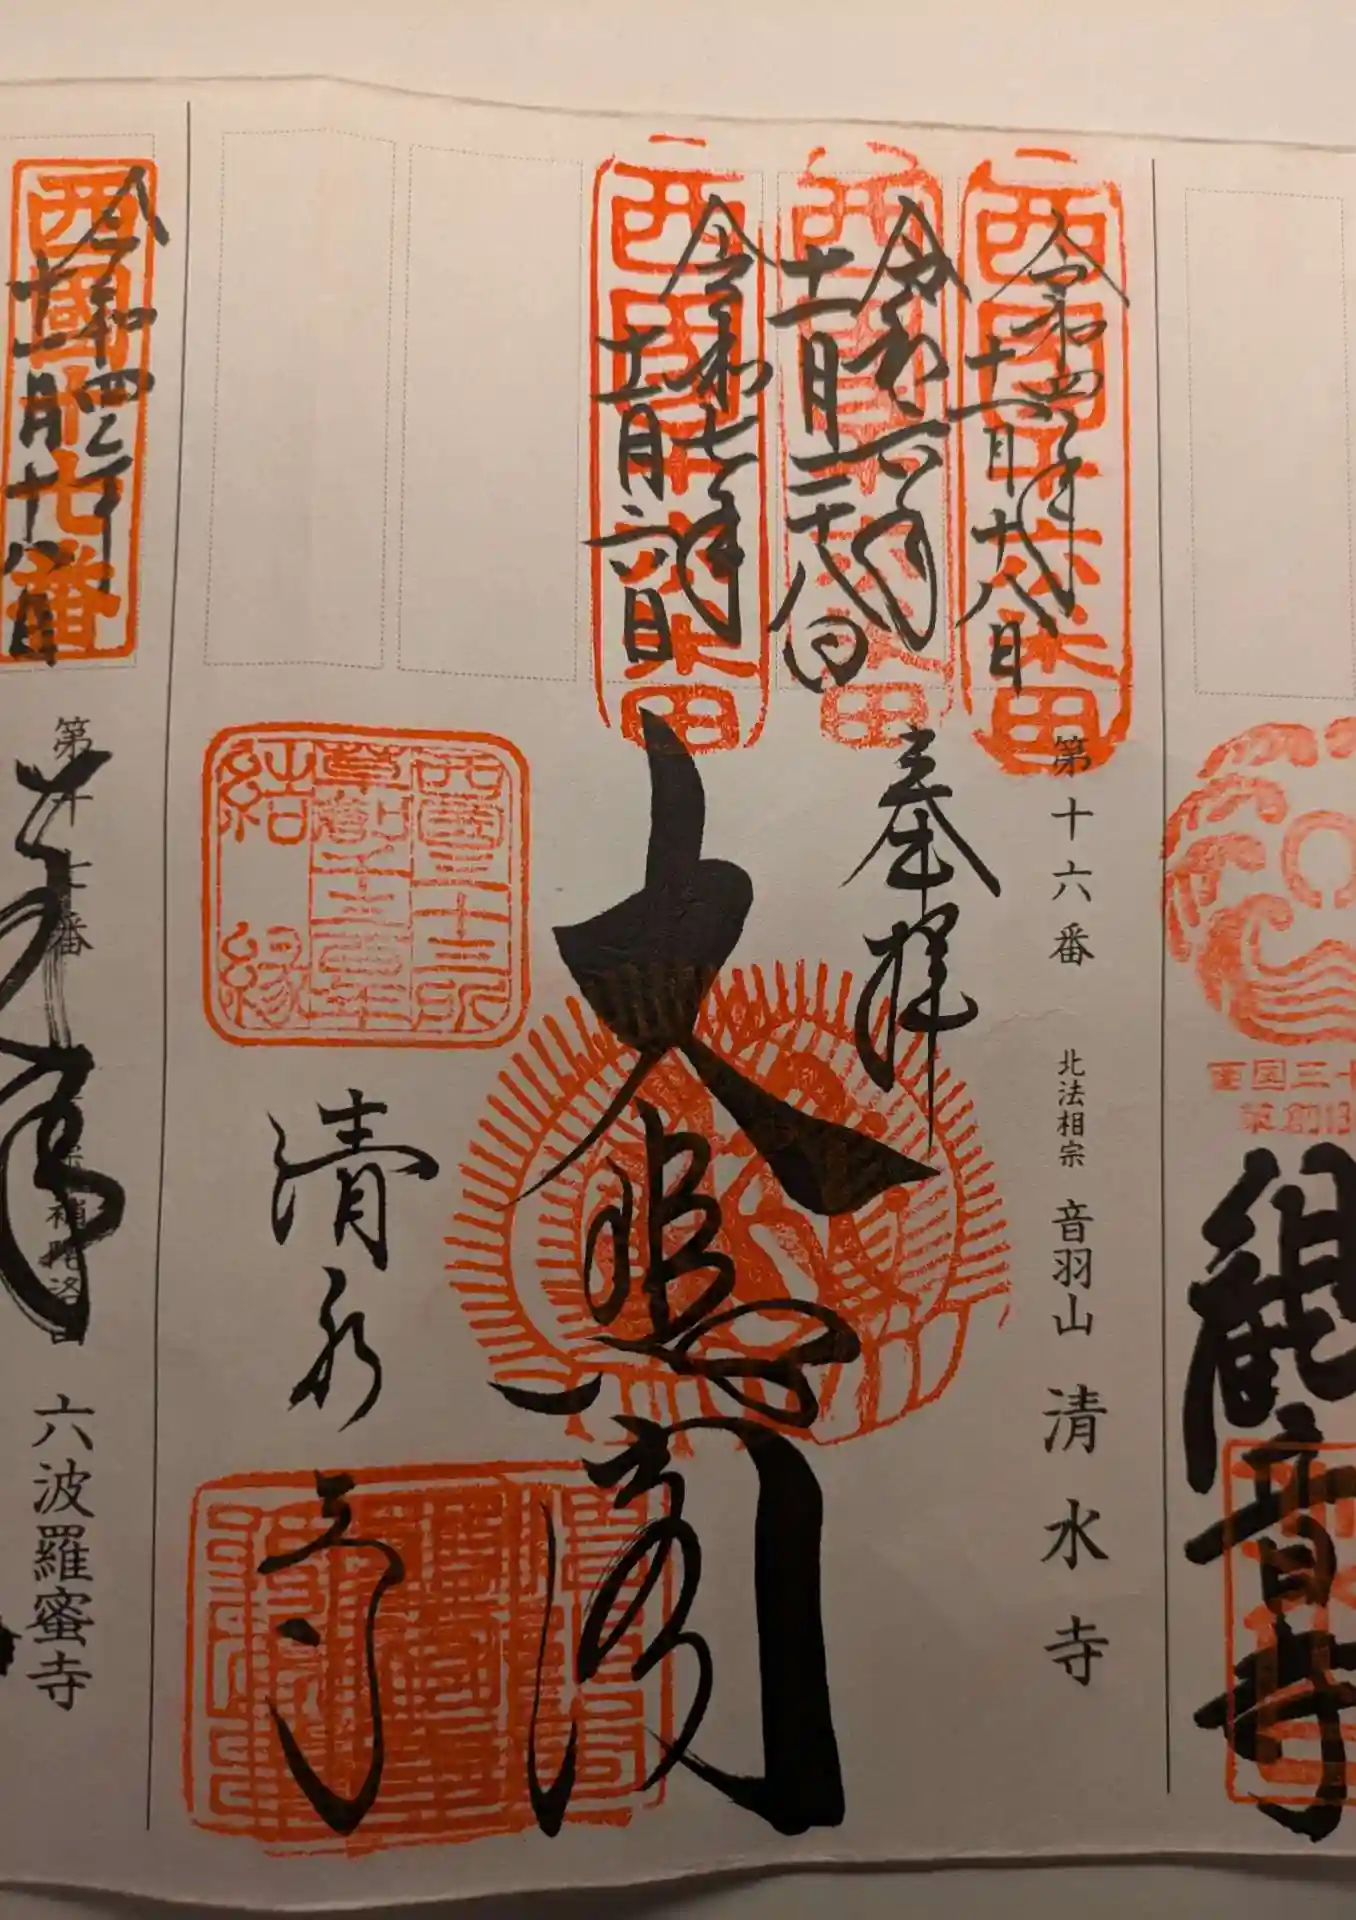 西国十六番
令和四年
十一月十八日
西国十六番
令和六年
十一月二十八日
西国十六番
令和七年
十一月六日
第十六番 北法相宗 音羽山 清水寺
奉拝
大悲閣
清水寺
西国三十三所
草創千三百年
結縁
観音寺
西國十七番
令和四年
十一月十八日
六波羅蜜寺